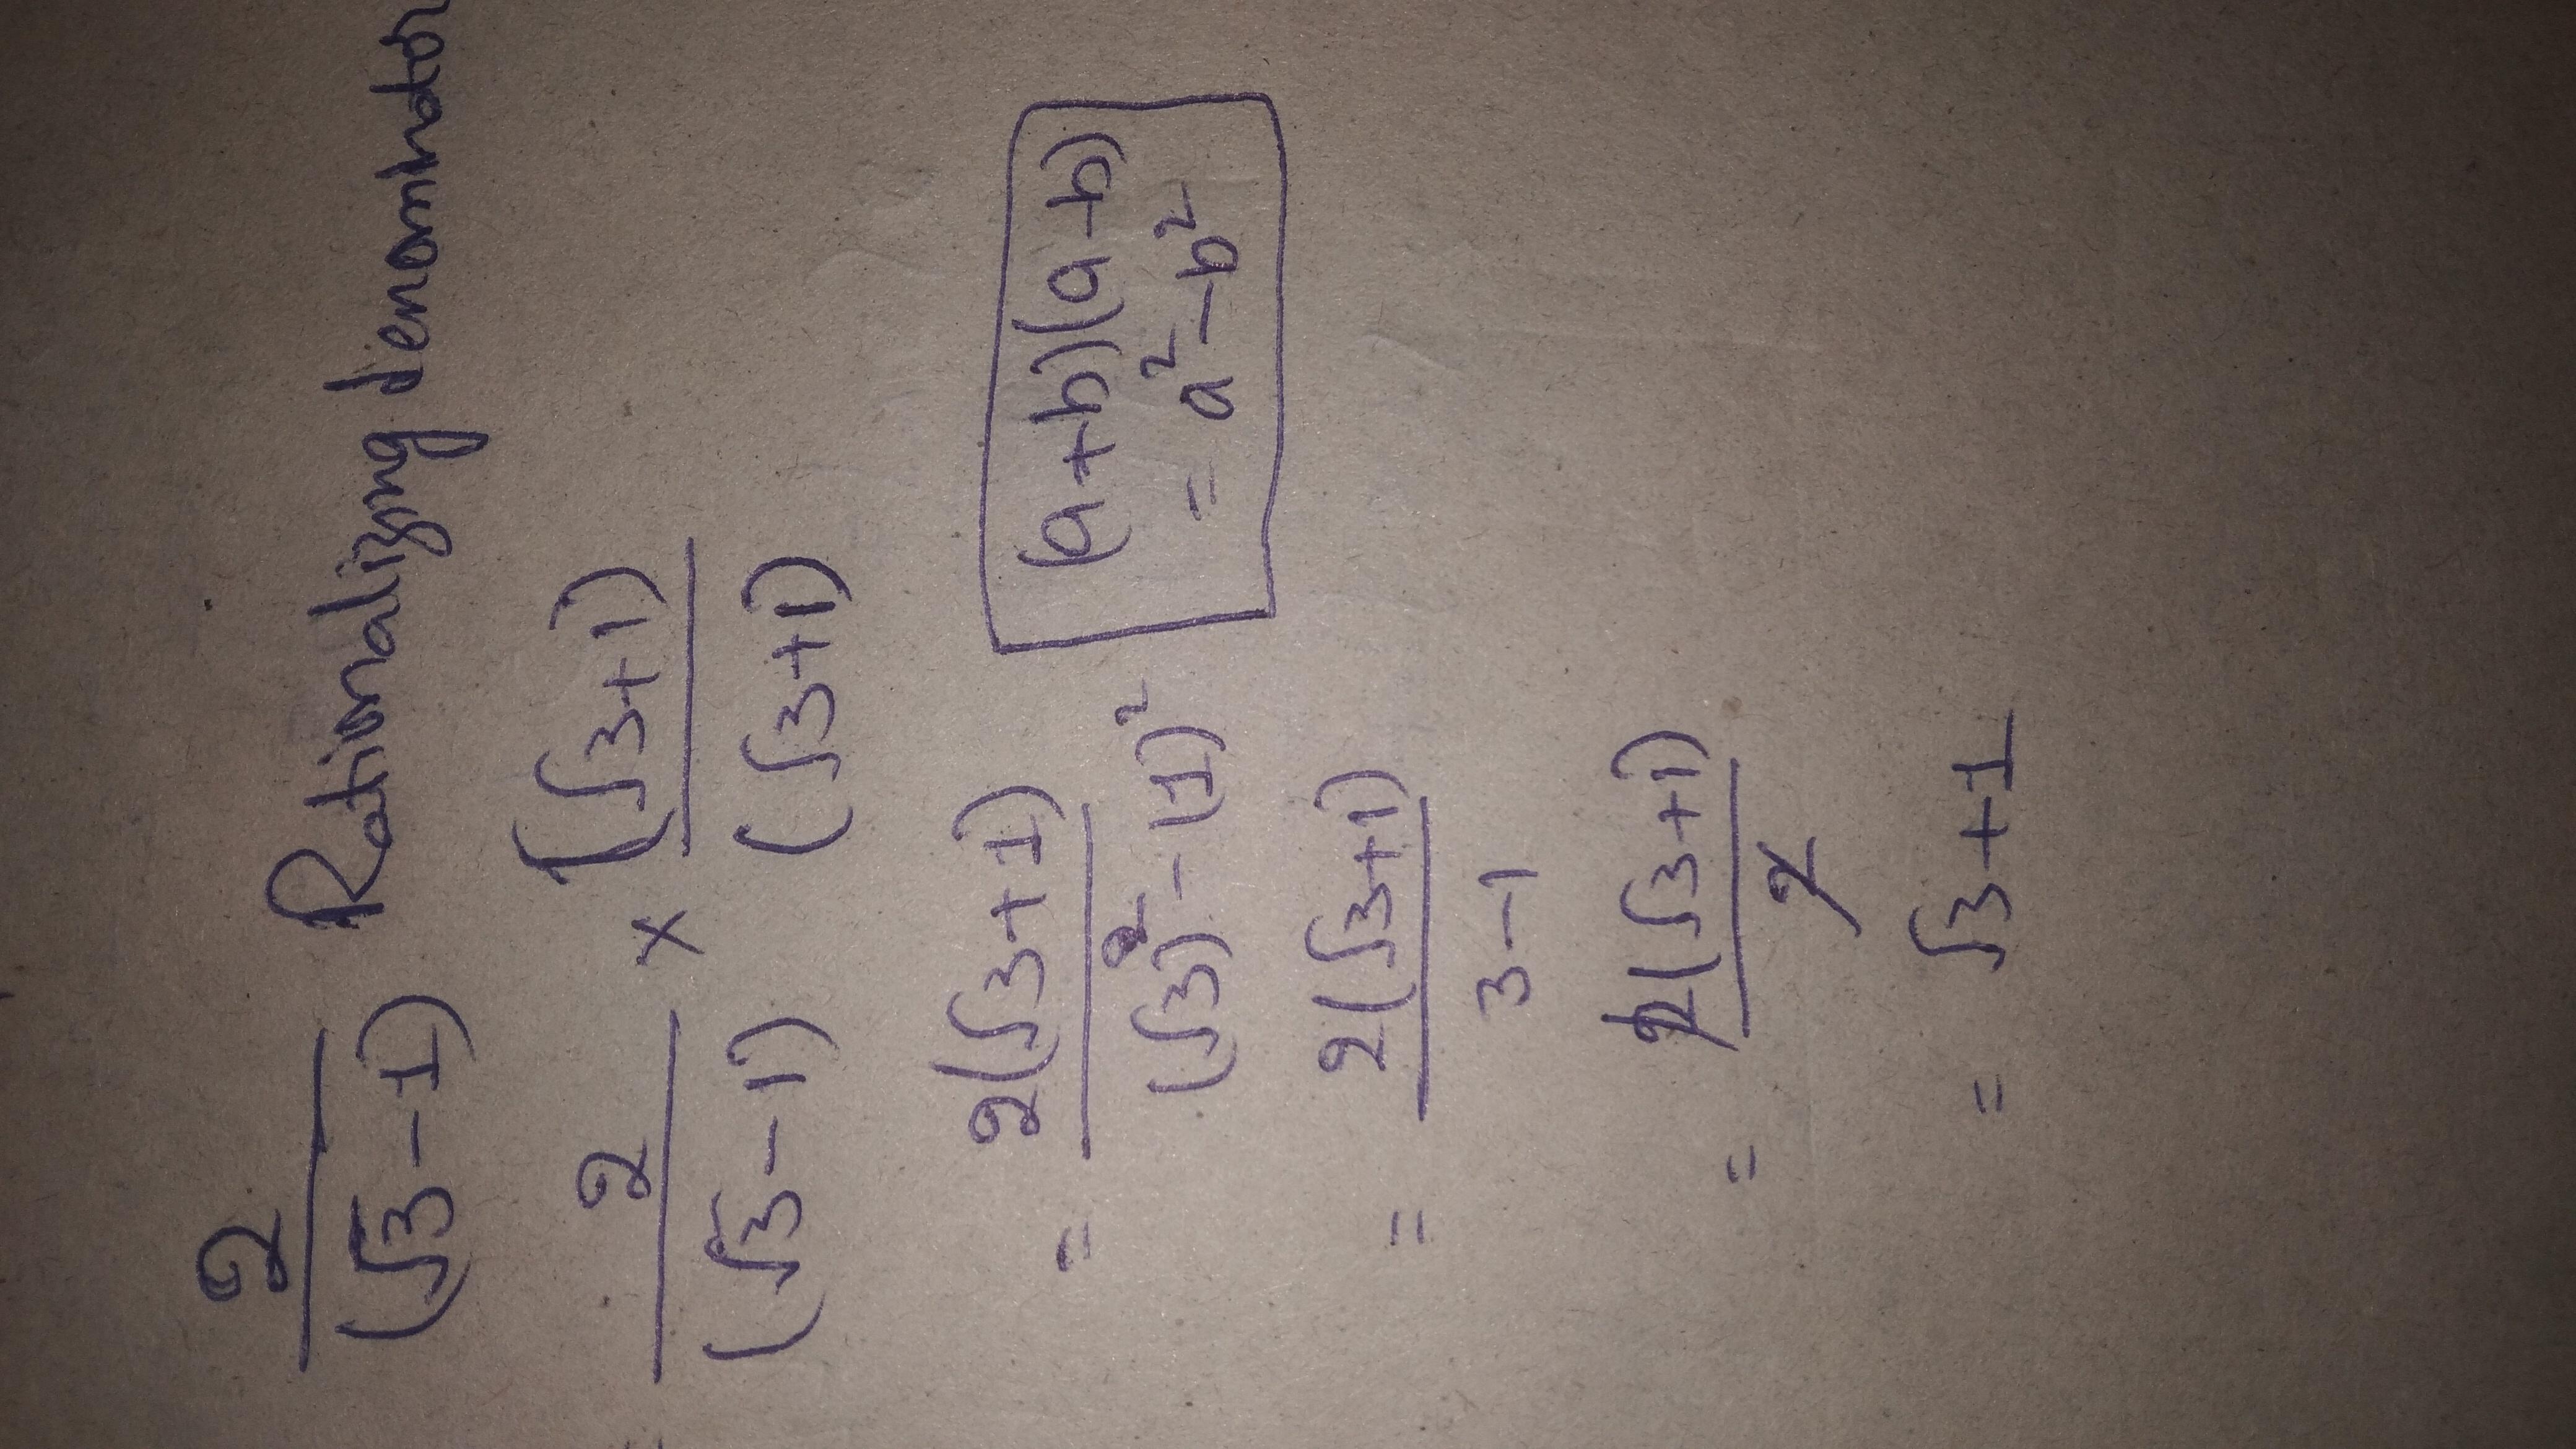 2/(√3-1) Rationalizing denominator
2/(√3-1) × (√3+1)/(√3+1)
= 2(√3+1)/(√3)²-(1)²
(a+b)(a-b)
= a²-b²
= 2(√3+1)/3-1
= 2(√3+1)/2
= √3+1